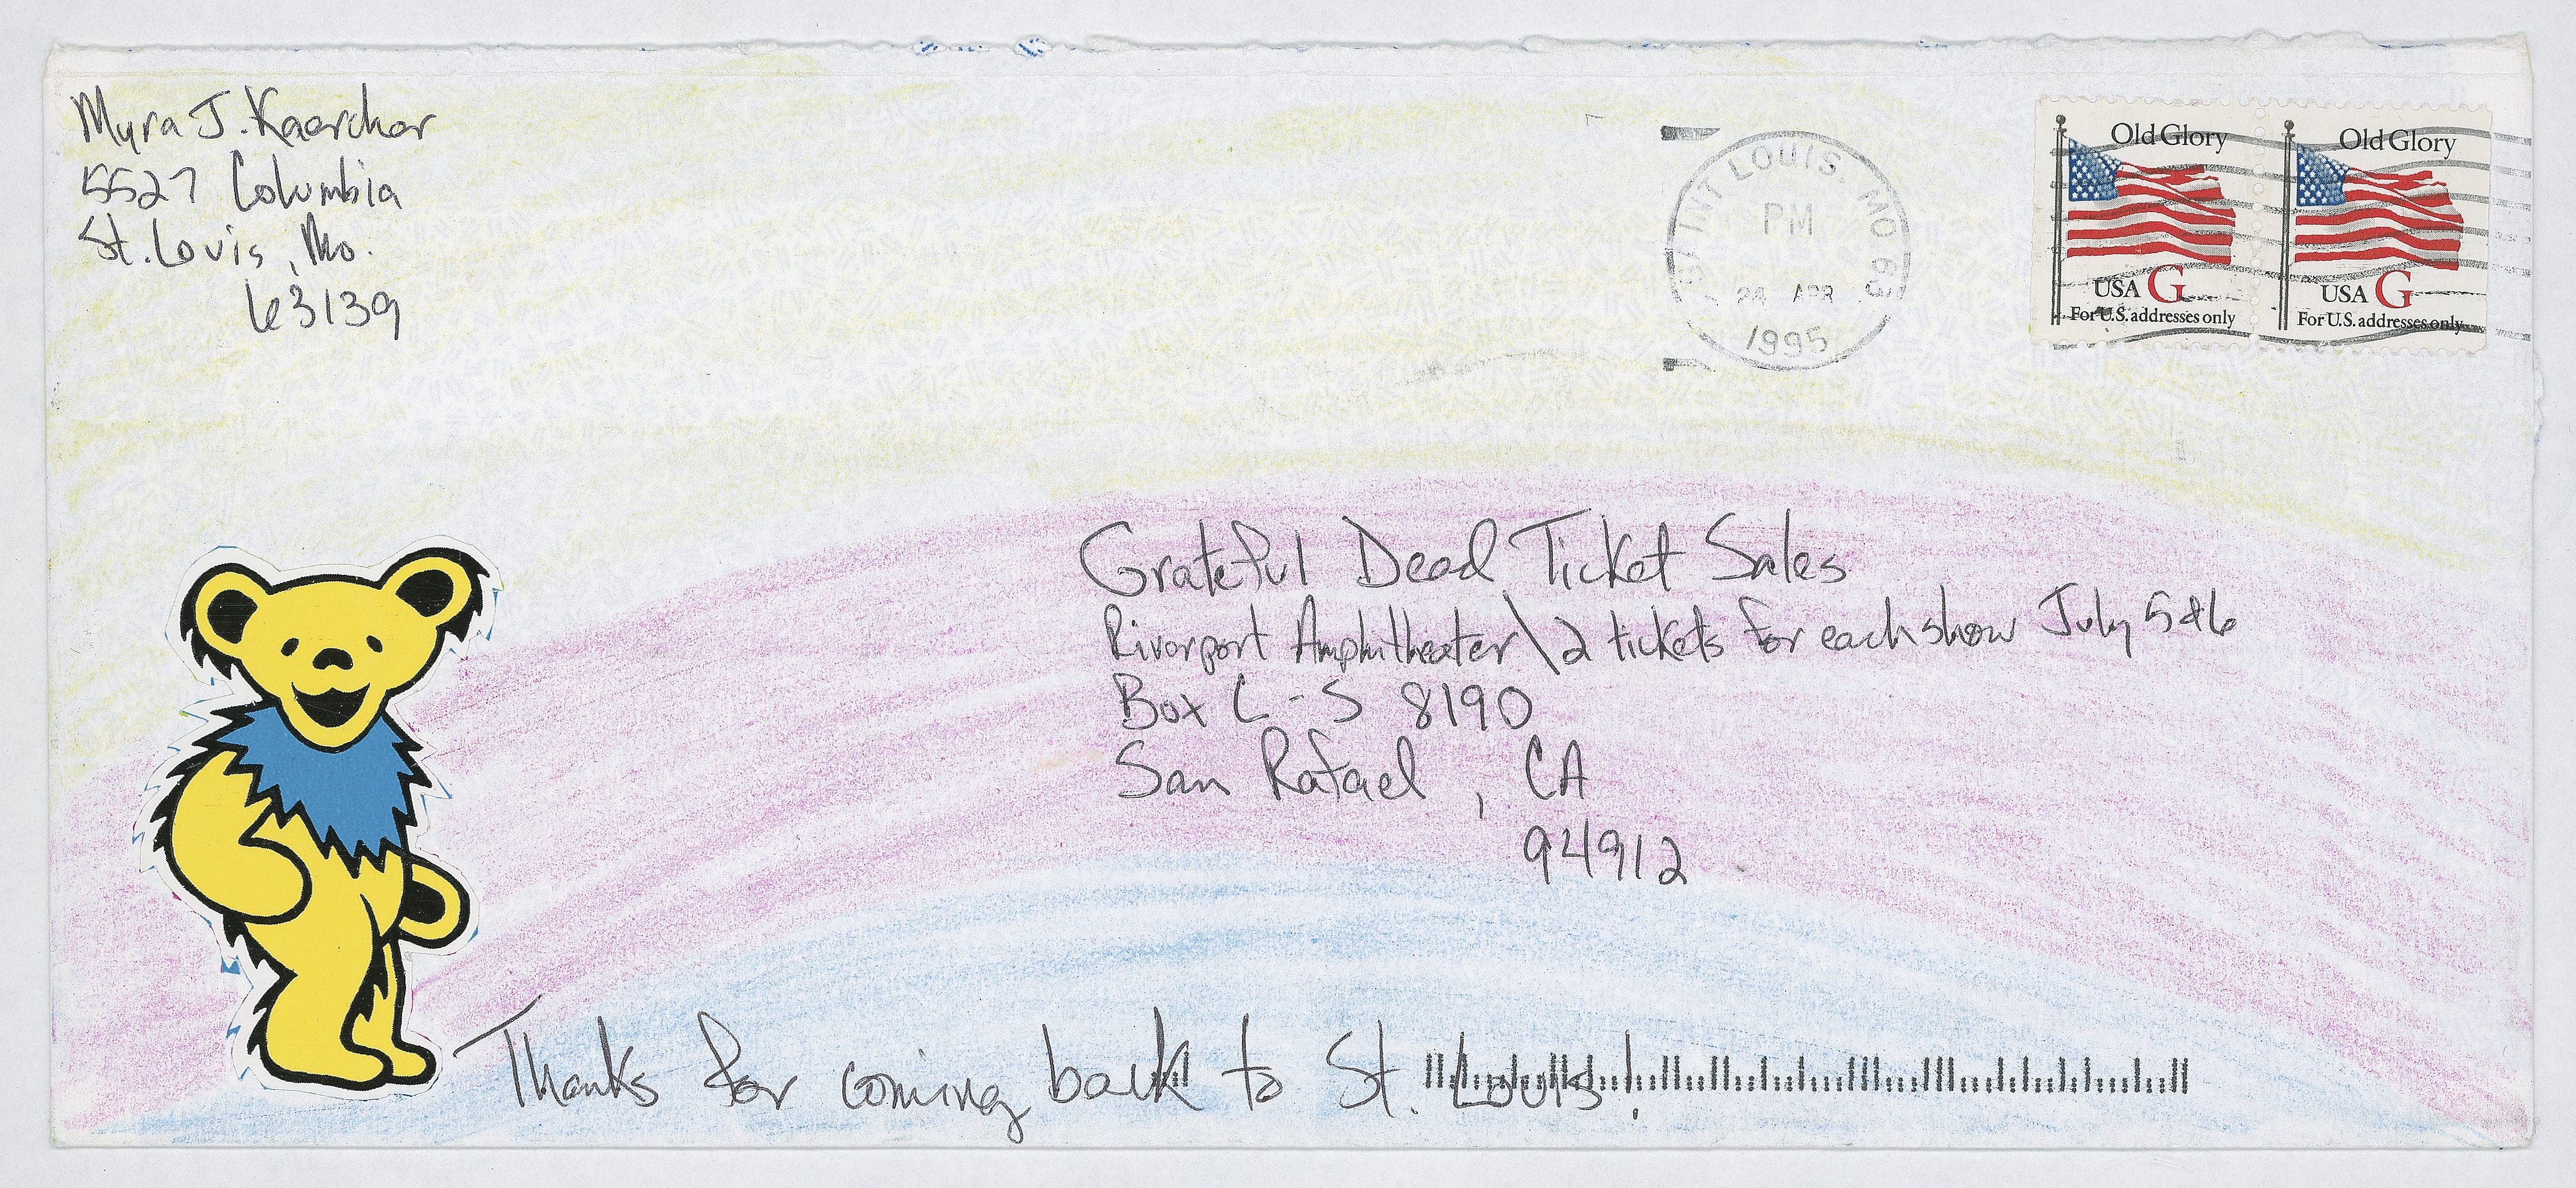 Myra J. Kaercher
5527 Columbia
St. Louis, Mo.
63139
SAINT LOUIS, MO 63
PM
24 APR
1995
Old Glory
USA G
For U.S. addresses only
Old Glory
USA G
For U.S. addresses only
Grateful Dead Ticket Sales
Riverport Amphitheater\2 tickets for each show July 5&6
Box C-S 8190
San Rafael, CA
94912
Thanks for coming back to St. Louis!